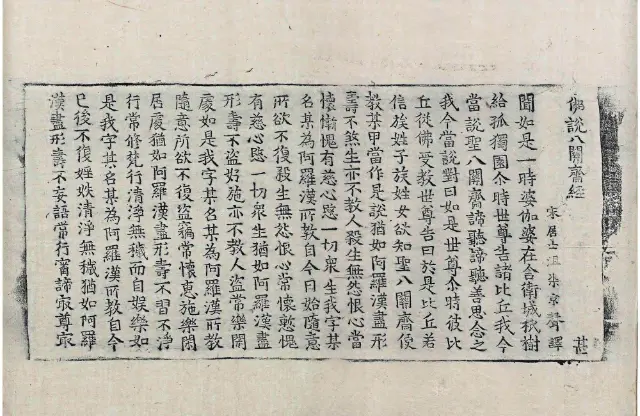 佛說八關齋經
宋居士沮渠京聲譯　甚
聞如是一時婆伽婆在舍衛城祇樹
給孤獨園尒時世尊告諸比丘我今
當說聖八關齋諦聽諦聽善思念之
我今當說對曰如是世尊尒時彼比
丘從佛受教世尊告曰於是比丘若
信族姓子族姓女欲知聖八關齋便
教某甲當作是說猶如阿羅漢盡形
壽不煞生亦不教人殺生無怨恨心當
懷慚愧有慈心愍一切衆生我字某
名某為阿羅漢所教自今日始隨意
所欲不復殺生無怨恨心常懷慙愧
有慈心愍一切衆生猶如阿羅漢盡
形壽不盜好施亦不教人盜常樂閑
處如是我字某名某為阿羅漢所教
隨意所欲不復盜竊常懷惠施樂閑
居處猶如阿羅漢盡形壽不習不淨
行常修梵行清淨無穢而自娛樂如
是我字某名某為阿羅漢所教自今
已後不復婬妷清淨無穢猶如阿羅
漢盡形壽不妄語常行審諦㝡尊㝡